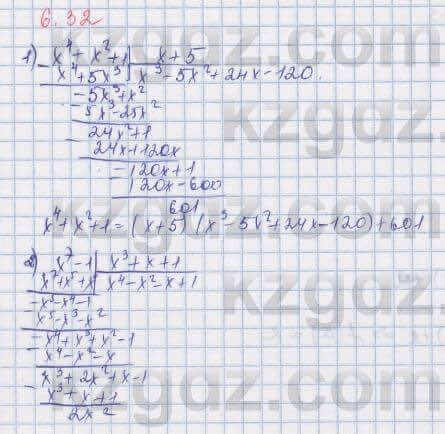 6.32
1) x⁴ + x² + 1 | x + 5
- x⁴ + 5x³ | x³ - 5x² + 24x - 120.
- 5x³ + x²
- 5x³ - 25x²
24x² + 1
- 24x + 120x
- 120x + 1
120x - 600
601
x⁴ + x² + 1 = (x + 5)(x³ - 5x² + 24x - 120) + 601
2) x⁷ - 1 | x³ + x + 1
x⁷ + x⁵ + x⁴ | x⁴ - x² - x + 1
- x⁵ - x⁴ - 1
- x⁵ - x³ - x²
- x⁴ + x³ + x² - 1
- x⁴ - x² - x
x³ + 2x² + x - 1
- x³ + x + 1
2x²
kgaz.com